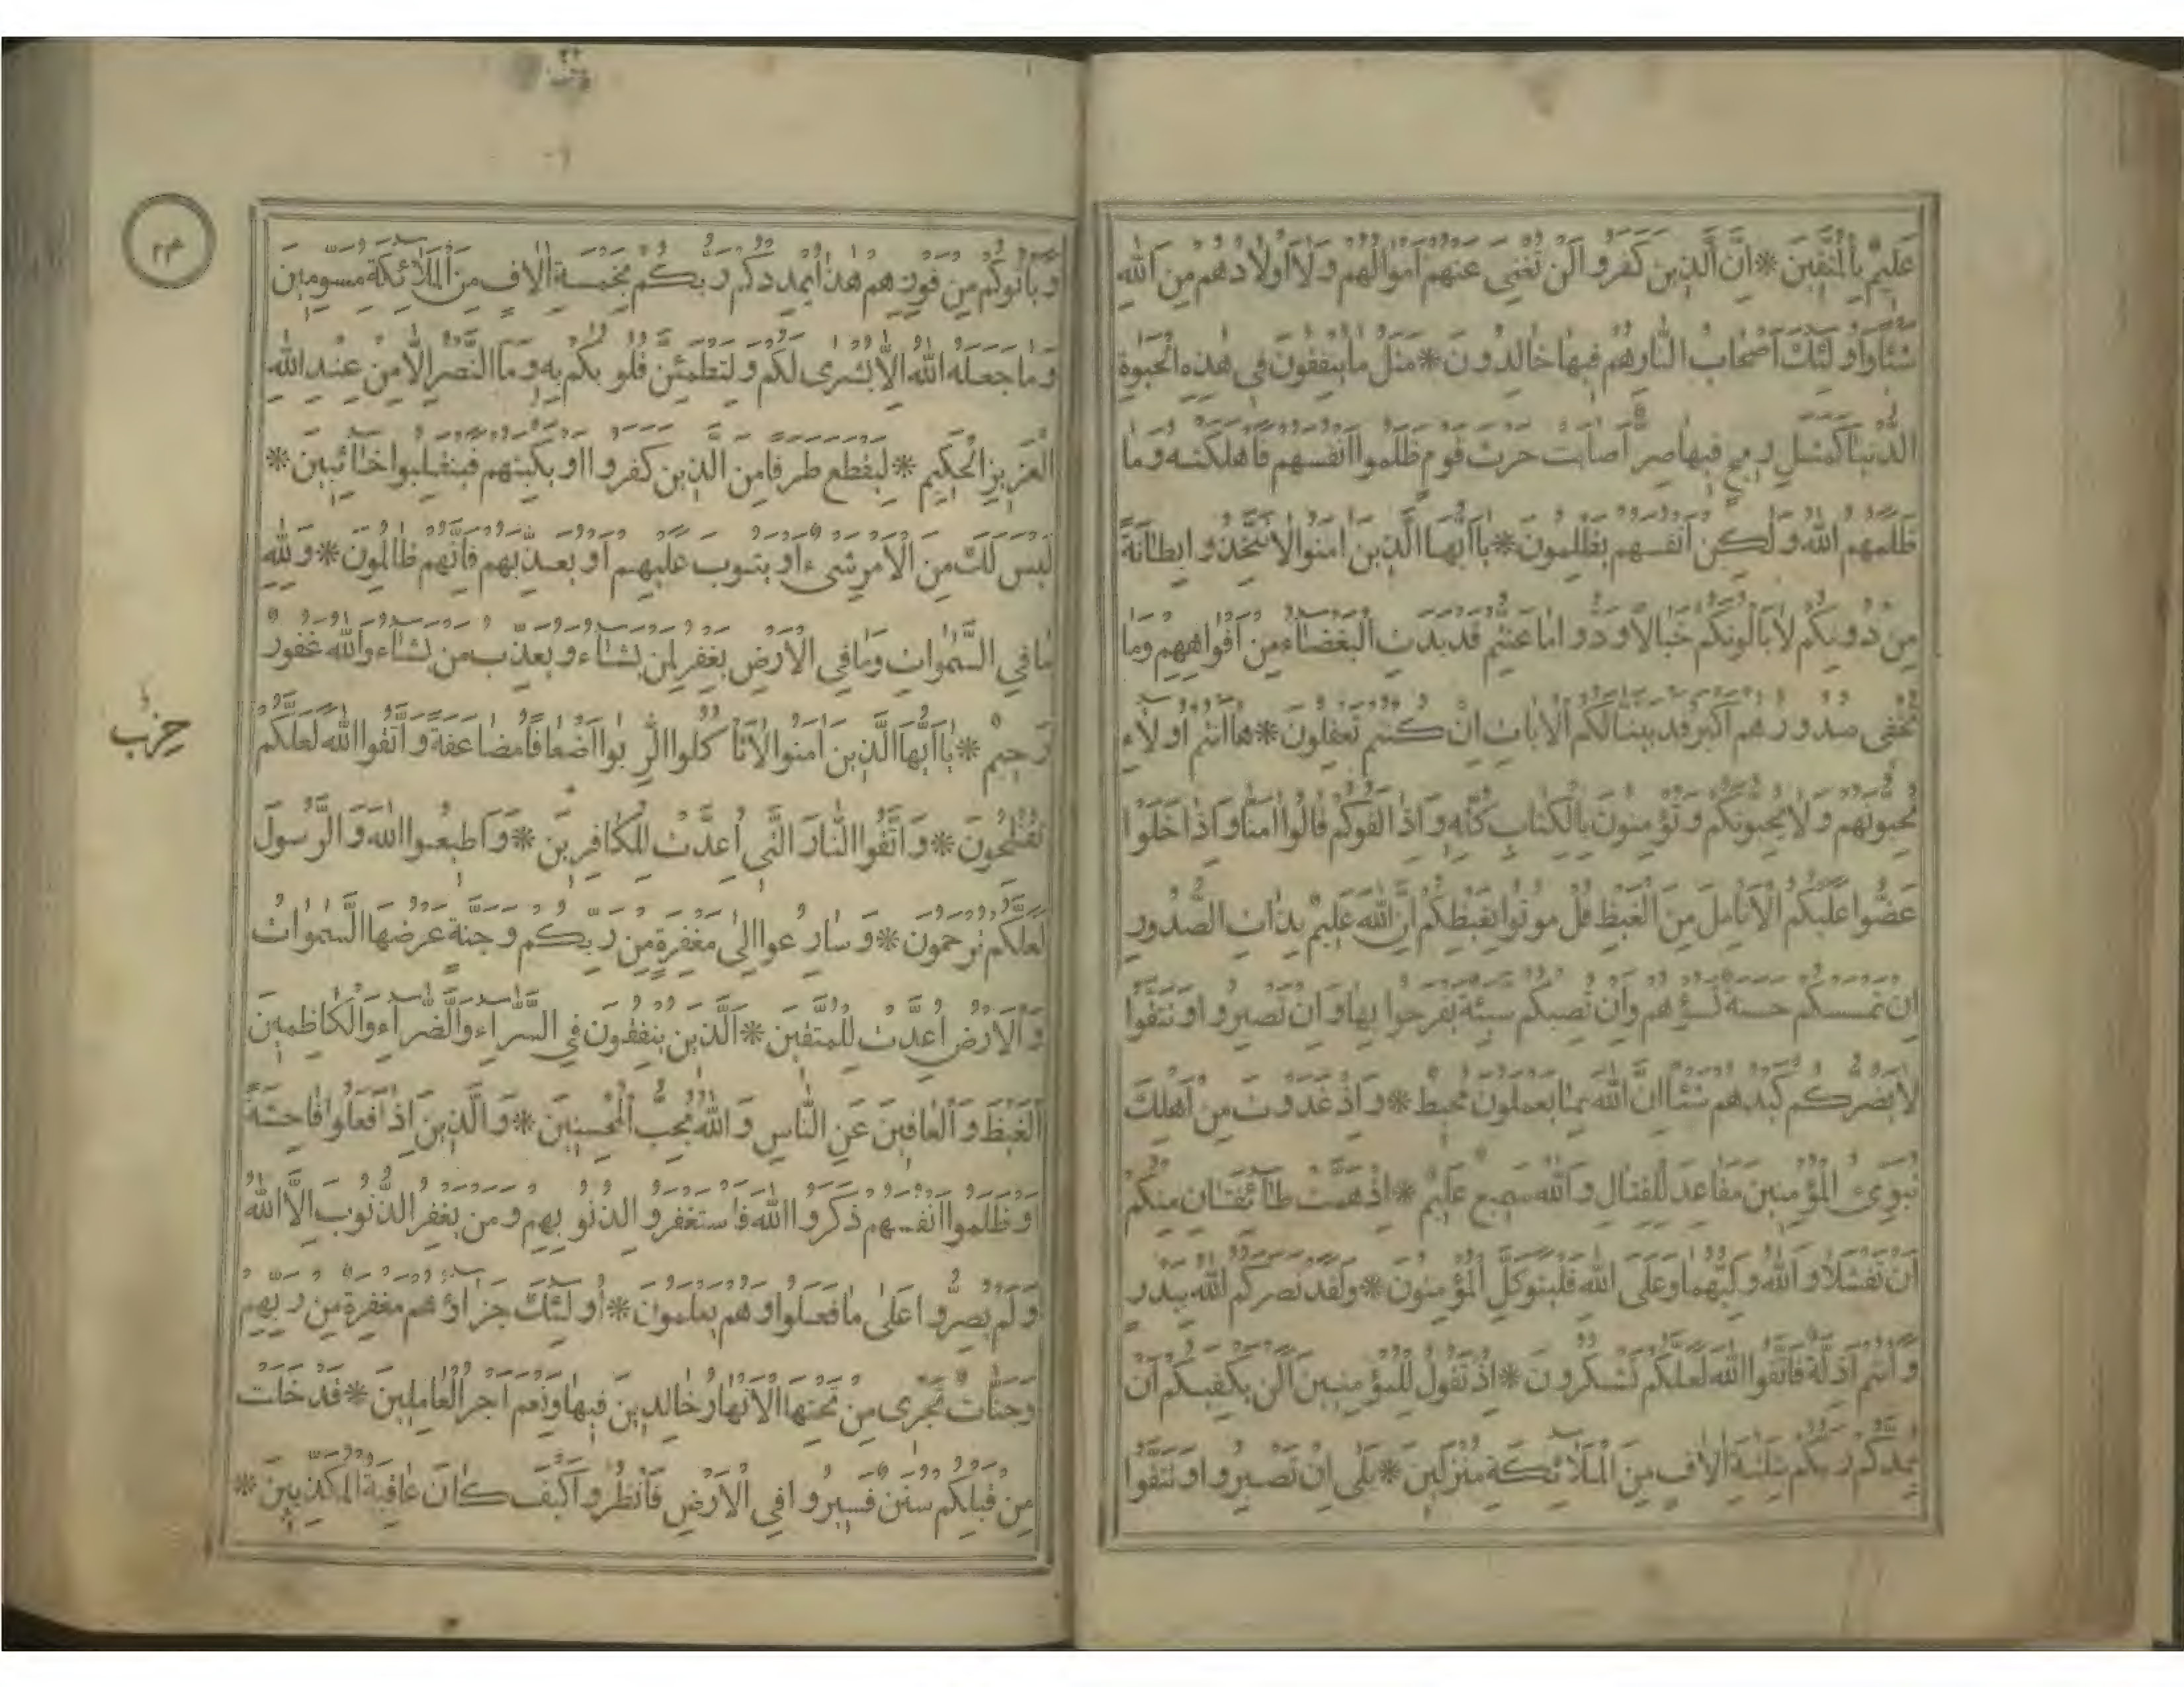 عَلِيمٌ بِالْمُتَّقِينَ * اِنَّ الَّذِينَ كَفَرُوا لَنْ تُغْنِيَ عَنْهُمْ اَمْوَالُهُمْ وَلَا اَوْلَادُهُمْ مِنَ اللّٰهِ
شَيْئًا وَاُولٰئِكَ اَصْحَابُ النَّارِ هُمْ فِيهَا خَالِدُونَ * مَثَلُ مَا يُنْفِقُونَ فِي هٰذِهِ الْحَيٰوةِ
الدُّنْيَا كَمَثَلِ رِيحٍ فِيهَا صِرٌّ اَصَابَتْ حَرْثَ قَوْمٍ ظَلَمُوا اَنْفُسَهُمْ فَاَهْلَكَتْهُ وَمَا
ظَلَمَهُمُ اللّٰهُ وَلٰكِنْ اَنْفُسَهُمْ يَظْلِمُونَ * يَا اَيُّهَا الَّذِينَ اٰمَنُوا لَا تَتَّخِذُوا بِطَانَةً
مِنْ دُونِكُمْ لَا يَاْلُونَكُمْ خَبَالًا وَدُّوا مَا عَنِتُّمْ قَدْ بَدَتِ الْبَغْضَاءُ مِنْ اَفْوَاهِهِمْ وَمَا
تُخْفِي صُدُورُهُمْ اَكْبَرُ قَدْ بَيَّنَّا لَكُمُ الْاٰيَاتِ اِنْ كُنْتُمْ تَعْقِلُونَ * هَا اَنْتُمْ اُولَاءِ
تُحِبُّونَهُمْ وَلَا يُحِبُّونَكُمْ وَتُؤْمِنُونَ بِالْكِتَابِ كُلِّهِ وَاِذَا لَقُوكُمْ قَالُوا اٰمَنَّا وَاِذَا خَلَوْا
عَضُّوا عَلَيْكُمُ الْاَنَامِلَ مِنَ الْغَيْظِ قُلْ مُوتُوا بِغَيْظِكُمْ اِنَّ اللّٰهَ عَلِيمٌ بِذَاتِ الصُّدُورِ
اِنْ تَمْسَسْكُمْ حَسَنَةٌ تَسُؤْهُمْ وَاِنْ تُصِبْكُمْ سَيِّئَةٌ يَفْرَحُوا بِهَا وَاِنْ تَصْبِرُوا وَتَتَّقُوا
لَا يَضُرُّكُمْ كَيْدُهُمْ شَيْئًا اِنَّ اللّٰهَ بِمَا يَعْمَلُونَ مُحِيطٌ * وَاِذْ غَدَوْتَ مِنْ اَهْلِكَ
تُبَوِّئُ الْمُؤْمِنِينَ مَقَاعِدَ لِلْقِتَالِ وَاللّٰهُ سَمِيعٌ عَلِيمٌ * اِذْ هَمَّتْ طَائِفَتَانِ مِنْكُمْ
اَنْ تَفْشَلَا وَاللّٰهُ وَلِيُّهُمَا وَعَلَى اللّٰهِ فَلْيَتَوَكَّلِ الْمُؤْمِنُونَ * وَلَقَدْ نَصَرَكُمُ اللّٰهُ بِبَدْرٍ
وَاَنْتُمْ اَذِلَّةٌ فَاتَّقُوا اللّٰهَ لَعَلَّكُمْ تَشْكُرُونَ * اِذْ تَقُولُ لِلْمُؤْمِنِينَ اَلَنْ يَكْفِيَكُمْ اَنْ
يُمِدَّكُمْ رَبُّكُمْ بِثَلٰثَةِ اٰلَافٍ مِنَ الْمَلَائِكَةِ مُنْزَلِينَ * بَلٰى اِنْ تَصْبِرُوا وَتَتَّقُوا
٢٤
وَيَاْتُوكُمْ مِنْ فَوْرِهِمْ هٰذَا يُمْدِدْكُمْ رَبُّكُمْ بِخَمْسَةِ اٰلَافٍ مِنَ الْمَلَائِكَةِ مُسَوِّمِينَ
وَمَا جَعَلَهُ اللّٰهُ اِلَّا بُشْرٰى لَكُمْ وَلِتَطْمَئِنَّ قُلُوبُكُمْ بِهِ وَمَا النَّصْرُ اِلَّا مِنْ عِنْدِ اللّٰهِ
الْعَزِيزِ الْحَكِيمِ * لِيَقْطَعَ طَرَفًا مِنَ الَّذِينَ كَفَرُوا اَوْ يَكْبِتَهُمْ فَيَنْقَلِبُوا خَائِبِينَ *
لَيْسَ لَكَ مِنَ الْاَمْرِ شَيْءٌ اَوْ يَتُوبَ عَلَيْهِمْ اَوْ يُعَذِّبَهُمْ فَاِنَّهُمْ ظَالِمُونَ * وَلِلّٰهِ
مَا فِي السَّمٰوَاتِ وَمَا فِي الْاَرْضِ يَغْفِرُ لِمَنْ يَشَاءُ وَيُعَذِّبُ مَنْ يَشَاءُ وَاللّٰهُ غَفُورٌ
رَحِيمٌ * يَا اَيُّهَا الَّذِينَ اٰمَنُوا لَا تَاْكُلُوا الرِّبٰوا اَضْعَافًا مُضَاعَفَةً وَاتَّقُوا اللّٰهَ لَعَلَّكُمْ
حزب
تُفْلِحُونَ * وَاتَّقُوا النَّارَ الَّتِي اُعِدَّتْ لِلْكَافِرِينَ * وَاَطِيعُوا اللّٰهَ وَالرَّسُولَ
لَعَلَّكُمْ تُرْحَمُونَ * وَسَارِعُوا اِلٰى مَغْفِرَةٍ مِنْ رَبِّكُمْ وَجَنَّةٍ عَرْضُهَا السَّمٰوَاتُ
وَالْاَرْضُ اُعِدَّتْ لِلْمُتَّقِينَ * اَلَّذِينَ يُنْفِقُونَ فِي السَّرَّاءِ وَالضَّرَّاءِ وَالْكَاظِمِينَ
الْغَيْظَ وَالْعَافِينَ عَنِ النَّاسِ وَاللّٰهُ يُحِبُّ الْمُحْسِنِينَ * وَالَّذِينَ اِذَا فَعَلُوا فَاحِشَةً
اَوْ ظَلَمُوا اَنْفُسَهُمْ ذَكَرُوا اللّٰهَ فَاسْتَغْفَرُوا لِذُنُوبِهِمْ وَمَنْ يَغْفِرُ الذُّنُوبَ اِلَّا اللّٰهُ
وَلَمْ يُصِرُّوا عَلٰى مَا فَعَلُوا وَهُمْ يَعْلَمُونَ * اُولٰئِكَ جَزَاؤُهُمْ مَغْفِرَةٌ مِنْ رَبِّهِمْ
وَجَنَّاتٌ تَجْرِي مِنْ تَحْتِهَا الْاَنْهَارُ خَالِدِينَ فِيهَا وَنِعْمَ اَجْرُ الْعَامِلِينَ * قَدْ خَلَتْ
مِنْ قَبْلِكُمْ سُنَنٌ فَسِيرُوا فِي الْاَرْضِ فَانْظُرُوا كَيْفَ كَانَ عَاقِبَةُ الْمُكَذِّبِينَ *